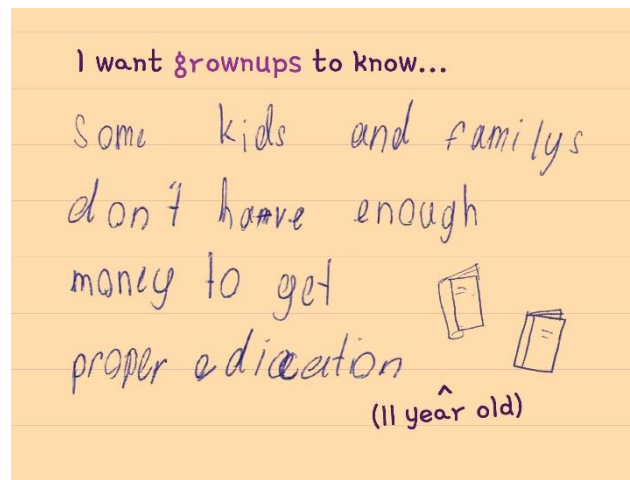 I want grownups to know...
Some kids and familys
don't have enough
money to get
proper edication
(11 year old)